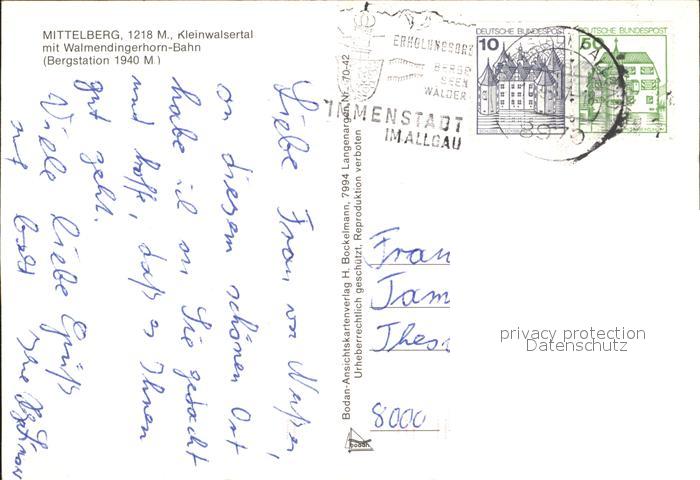 MITTELBERG, 1218 M., Kleinwalsertal
mit Walmendingerhorn-Bahn
(Bergstation 1940 M.)
Liebe Frau von
an diesem schönen Ort
habe ich an Sie gedacht
und hoffe, daß es Ihnen
gut geht.
Viele liebe Grüße
auf bald Ihre
Bodan-Ansichtskartenverlag H. Bockelmann, 7994 Langenargen, Nr. 70-42
Urheberrechtlich geschützt. Reproduktion verboten
bodan
ERHOLUNGSORT
BERGE
SEEN
WÄLDER
IMMENSTADT
IM ALLGÄU
DEUTSCHE BUNDESPOST
10
DEUTSCHE BUNDESPOST
50
Frau
Tam
Thes
8000
privacy protection
Datenschutz